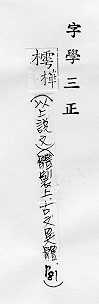 字學三正
樗樺(以上說文)(體製上古文異體)
181